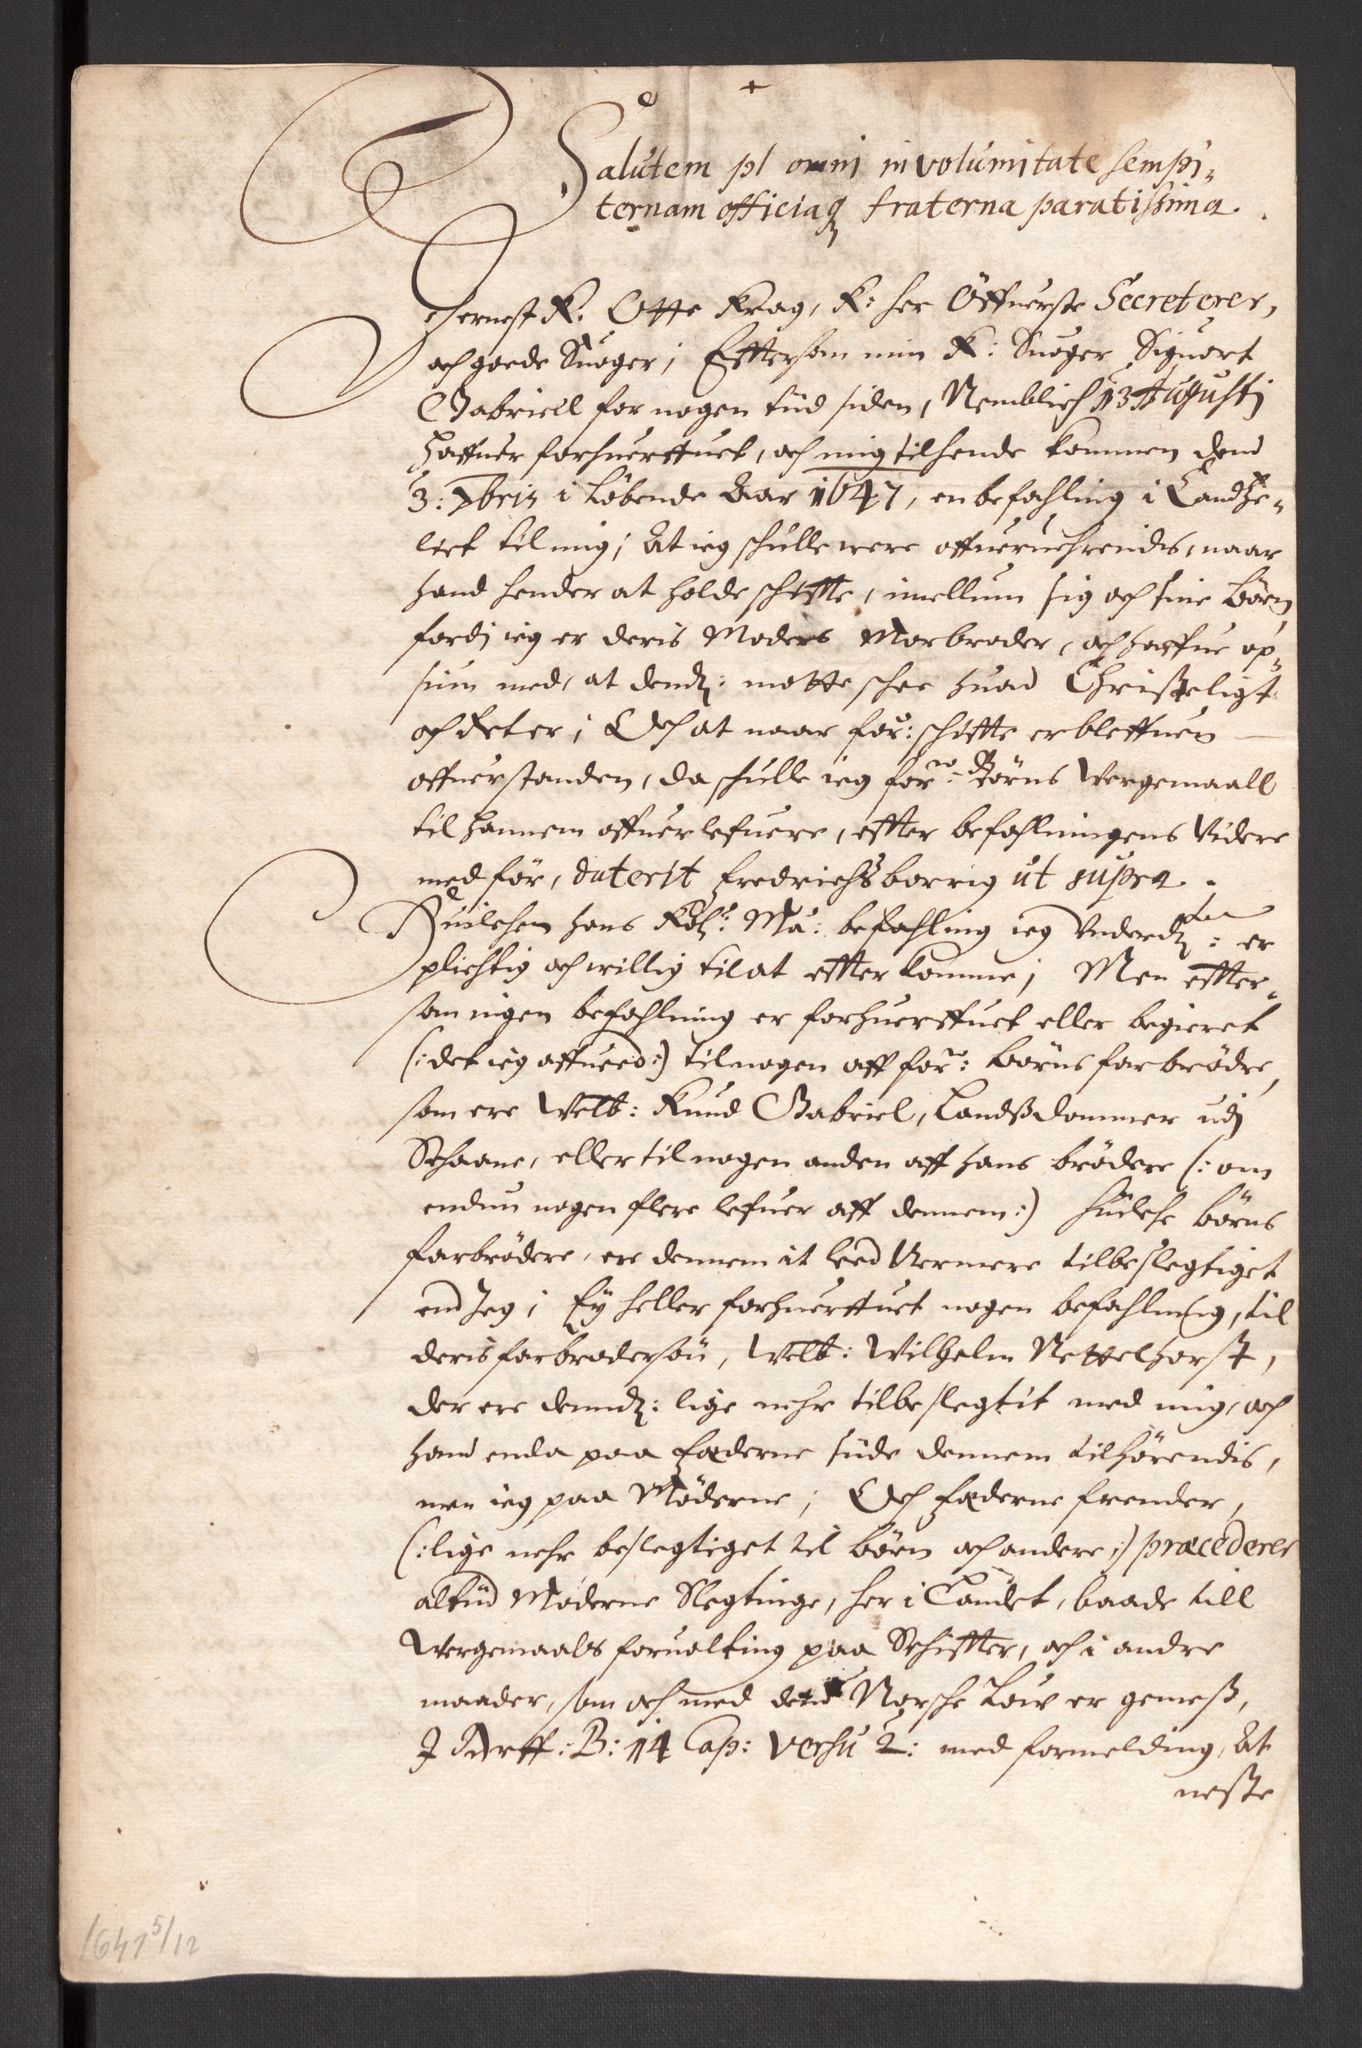 +
Salutem pl omni involumitate sempi-
ternam officiaq fraterna paratissima.
Gernest K. Otte Krag, K: her Öffuerste Secreterer,
och goede Suoger; Efftersom min K: Suoger Siguort
Gabriell for nogen tiid siden, Nemblich 13 Augusti
haffuer forhuerffuet, och mig tilhende kommen dend
3: 7bris i løbende Aar 1647, en befahling i Landhe-
liet til mig; At ieg schulle were offueruehrendis, naar
hand hender at holde schiffte, imellum sig och sine Børn,
fordj ieg er deris Moders Morbroder, och haffue op-
siun med, at dend: motte schee huad Christeligt
och Ret er; Och at naar for: schiffte er bleffuen
offuerstanden, da schulle ieg forne: Børns Vergemaall
til hannem offuerlefuere, effter befahlningens Videre
medför, daterit Fredrichsborrig ut supra.
Huilchen hans Kgl: Ma: befahling ieg Underd: er
plichtig och willig til at effterkomme; Men effter-
som ingen befahlning er forhuerffuet eller begieret
(: det ieg affueed :) til nogen aff forne: Børns farbrødre,
som ere Welb: Knud Gabriel, Landßdommer udj
Schaane, eller til nogen anden aff hans brödere (: om
endnu nogen flere lefuer aff dennem :) huilche börns
farbrödere, ere dennem it leed Nermere tilbeslegtiget
end Ieg; Ey heller forhuerffuet nogen befahlning, til
deris farbrodersön, Welb: Wilhelm Nettelhorst,
der ere dennd: lige nehr tilbeslegtit med mig, och
hand enda paa Fæderne siide dennem tilhörendis,
men ieg paa Möderne; Och fæderne frender,
(: lige nehr beslegtiget til börn och andere :) præcederer
altiid Möderne Slegtinge, her i Landet, baade till
Vergemaals foruolting paa Schiffter, och i andre
maader, som och med dend Norsche Low er gemeß,
I Arff: B: 14 Cap: Versu 2: med formelding, At
neste
1647 5/12